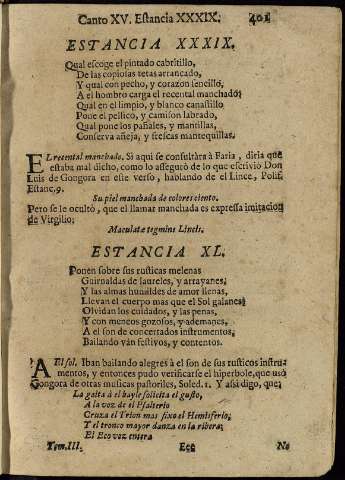 Canto XV. Estancia XXXIX. 401
ESTANCIA XXXIX.
Qual escoge el pintado cabritillo,
De las copiosas tetas arrancado,
Y qual con pecho, y corazon sencillo,
A el hombro carga el recental manchado;
Qual en el limpio, y blanco canastillo
Pone el pellico, y camison labrado,
Qual pone los pañales, y mantillas,
Conserva añeja, y frescas mantequillas.
EL recental manchado, Si aqui se consultàra à Faria, diria que
estaba mal dicho, como lo asseguró de lo que escriviò Don
Luis de Gongora en este verso, hablando de el Lince, Polif.
Estanc. 9.
Su piel manchada de colores ciento.
Pero se le ocultò, que el llamar manchada es expressa imitacion
de Virgilio;
Maculatæ tegmine Lincis.
ESTANCIA XL.
Ponen sobre sus rusticas melenas
Guirnaldas de laureles, y arrayanes;
Y las almas humildes de amor llenas,
Llevan el cuerpo mas que el Sol galanes;
Olvidan los cuidados, y las penas,
Y con meneos gozosos, y ademanes,
A el son de concertados instrumentos,
Bailando ván festivos, y contentos.
A El sol. Iban bailando alegres à el son de sus rusticos instru-
mentos, y entonces pudo verificarse el hiperbole, que usò
Gongora de otras musicas pastoriles, Soled. 1. Y assi digo, que;
La gaita à el bayle solicita el gusto,
A la voz de el Psalterio
Cruza el Trion mas fixo el Hemisferio,
Y el tronco mayor danza en la ribera;
El Eco voz entera
Tom. III. Eee No